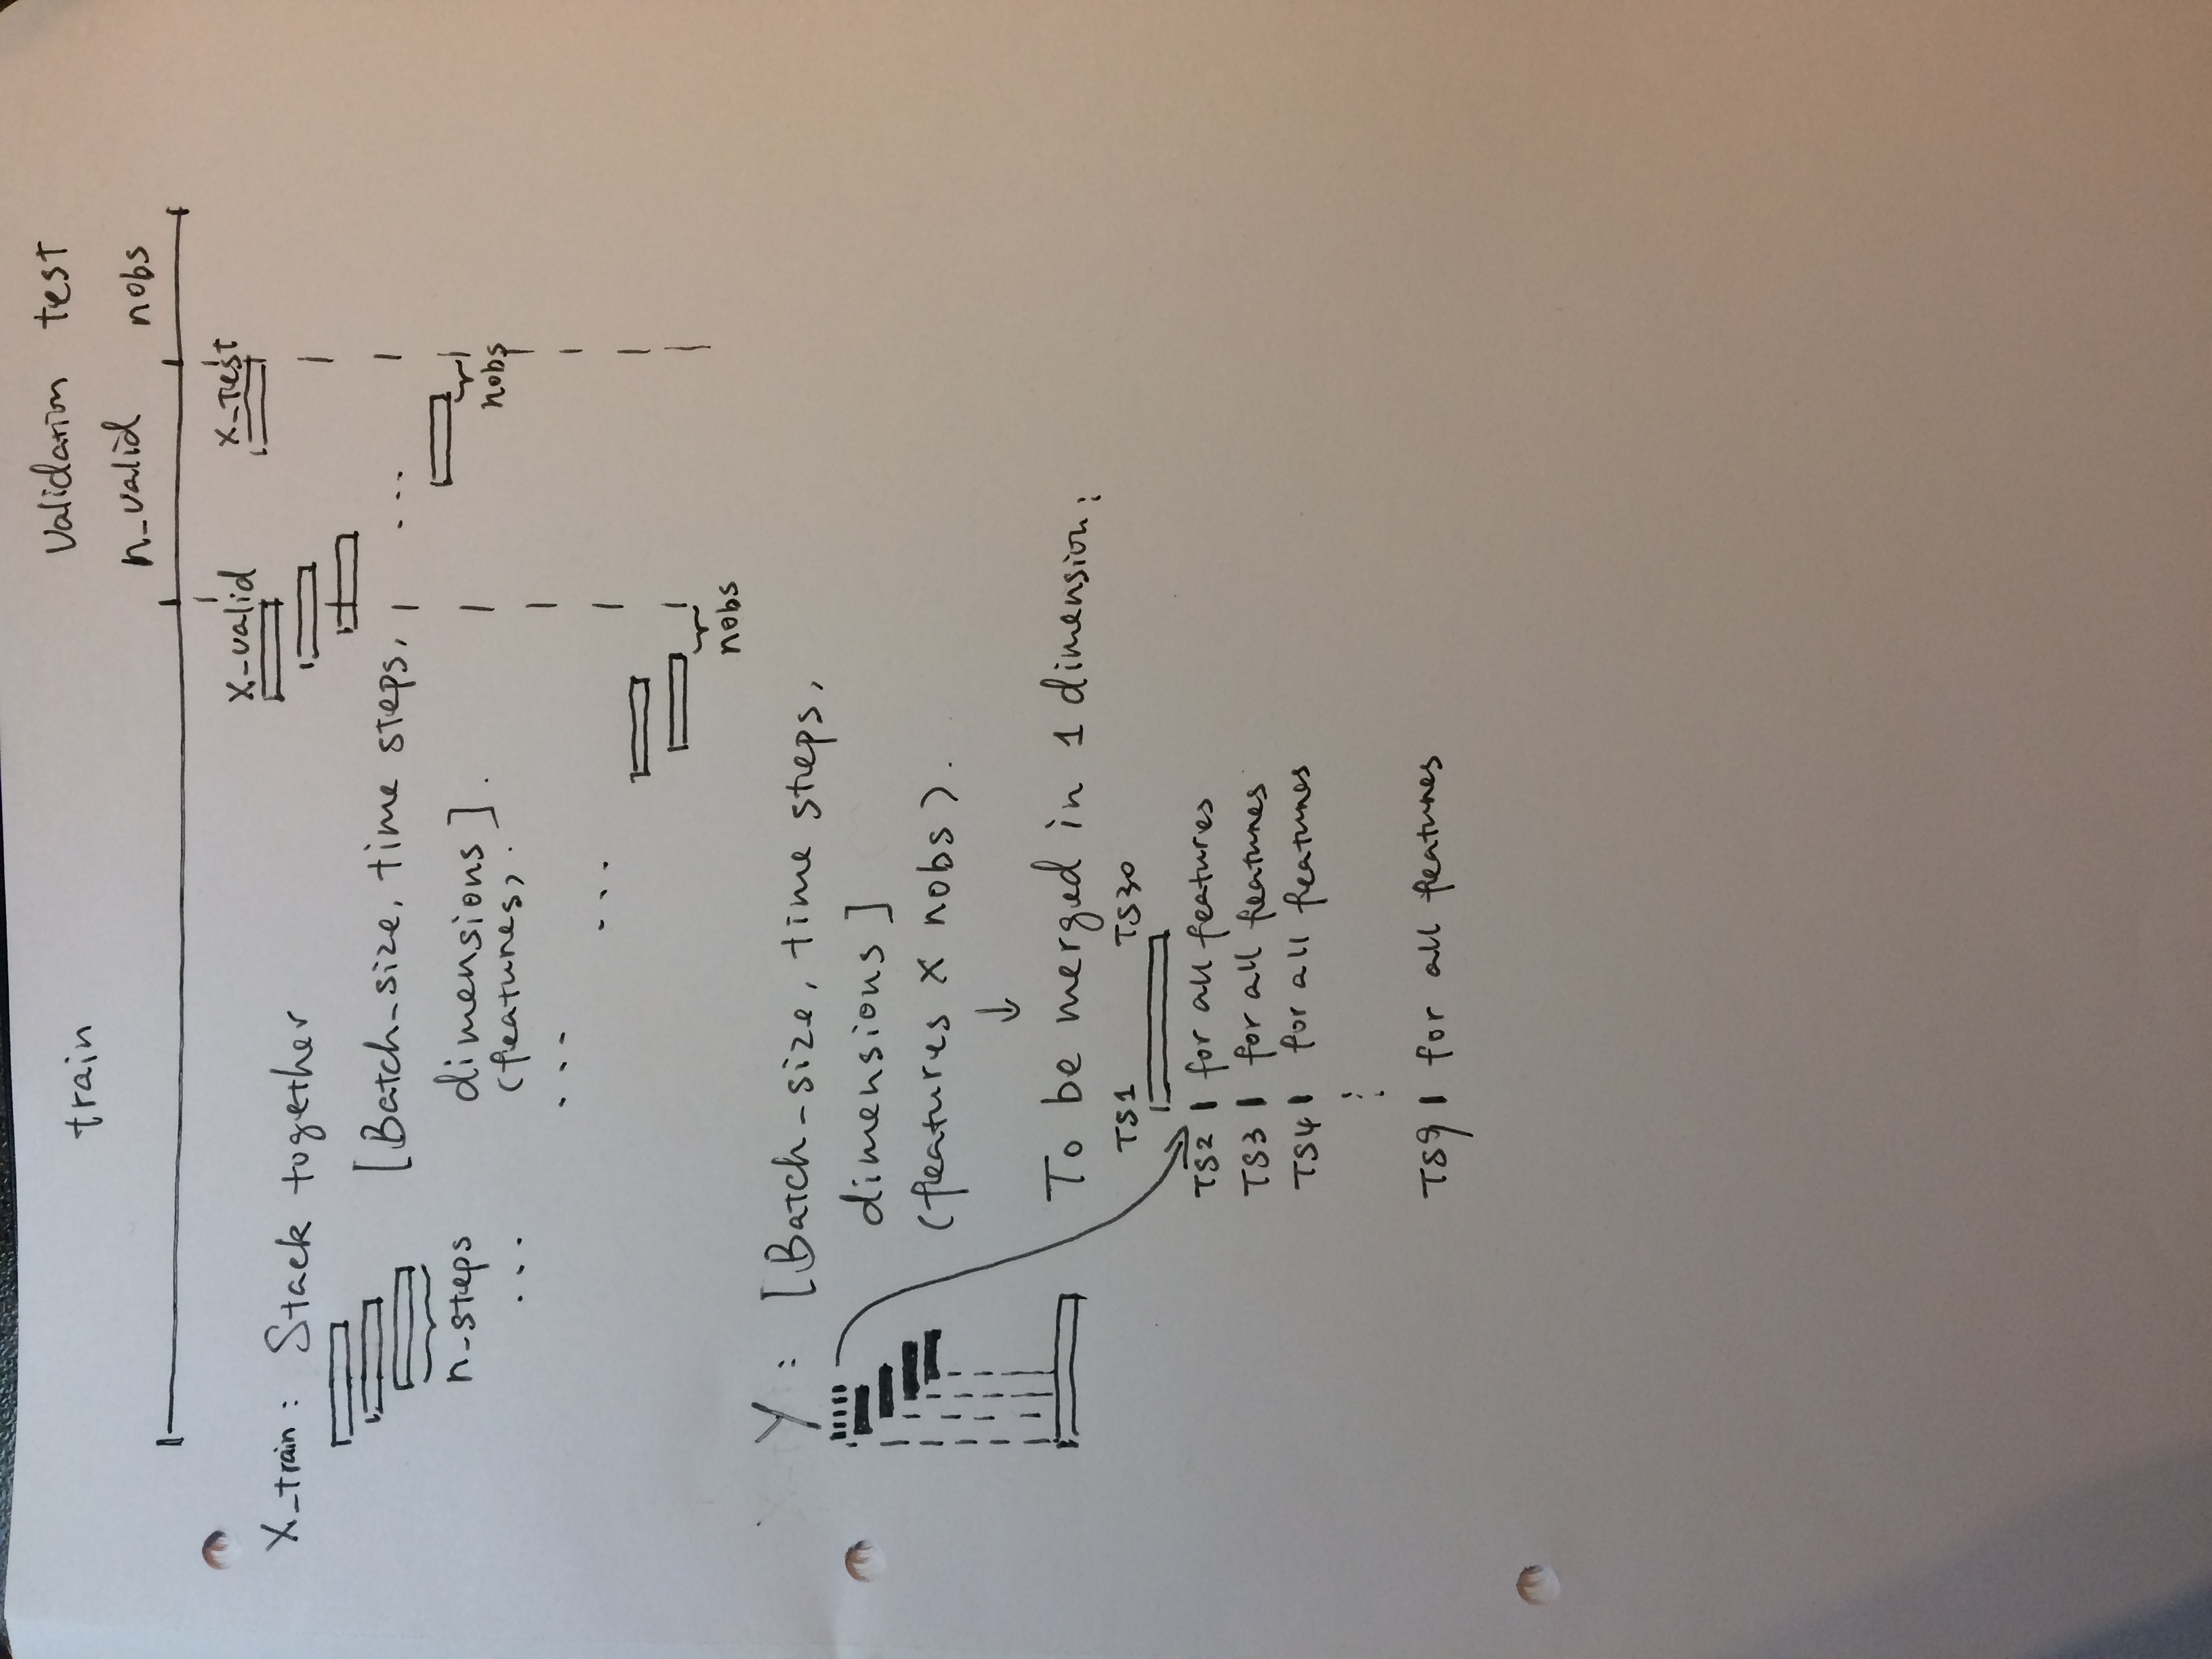 train
Validation test
n_valid nobs
X_valid X_Test
X_train: Stack together
[Batch_size, time steps,
...
dimensions].
n_steps
nobs
(features).
...
...
...
nobs
Y: [Batch-size, time steps,
dimensions]
(features X nobs).
↓
To be merged in 1 dimension:
TS1 TS30
TS2 for all features
TS3 for all features
TS4 for all features
⋮
TS9 for all features